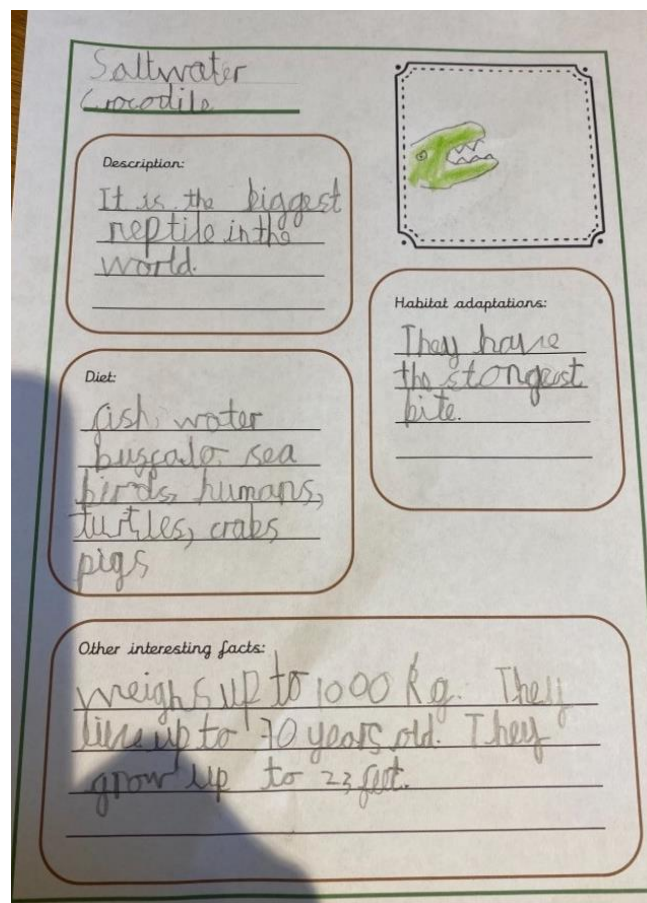 Saltwater
Crocodile
Description:
It is the biggest
reptile in the
world.
Habitat adaptations:
They have
the stongest
bite.
Diet:
fish, water
buffalo, sea
birds, humans,
turtles, crabs
pigs
Other interesting facts:
weighs up to 1000 kg. They
live up to 70 years old. They
grow up to 23 feet.